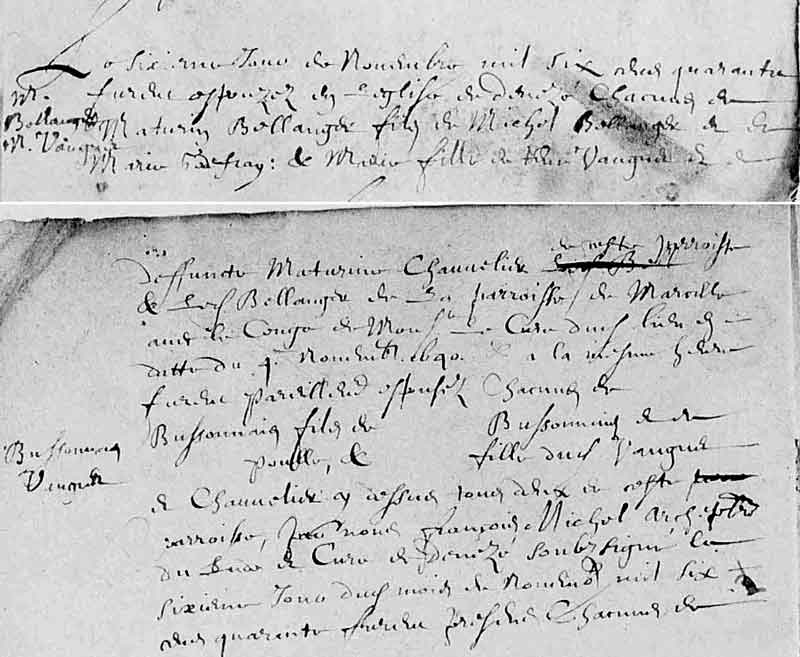 Le sixiesme Jour de Novembre mil six cens quarante
furent espouzez en l'eglise de Denezé Chacuns de
M.
Bellanger
M. Vaugue
Maturin Bellanger fils de Michel Bellanger et de
Marie & Marie fille de Vaugue et de
deffuncte Maturine Channelier de ceste parroisse
& led Bellanger de la parroisse de Marcille
avec le Congé de Mons le Curé dud lieu en
datte du 4 Novemb. 1640. & a la mesme heure
furent pareillemt espousez Chacuns de
Bussonnais fils de Bussonnais & de
Bussonnais
Vaugue
poulle, & fille dud Vaugue
et Channelier cy dessus tous deux de ceste
parroisse, par nous françois Michel Archiptre
du Lude et Curé de Denezé soubzsigné le
sixiesme Jour dud mois de Novemb mil six
cens quarante furent presens Chacuns de